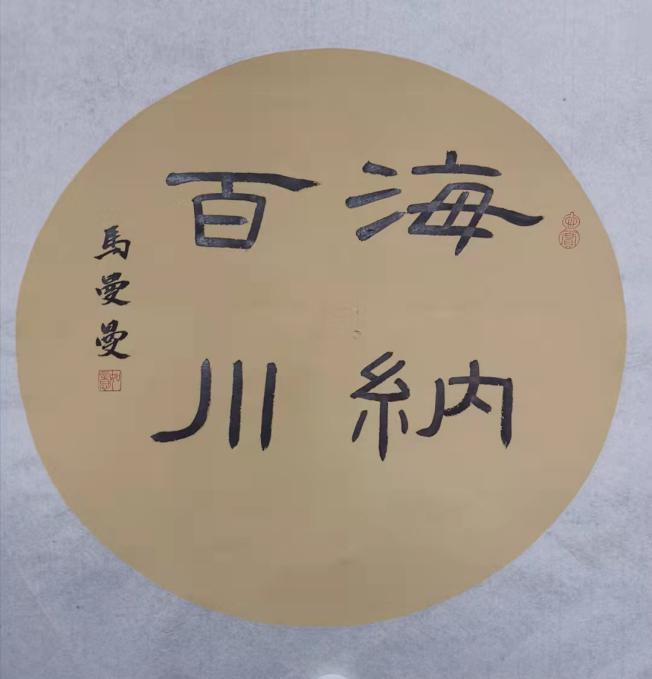 海納
百川
馬曼曼